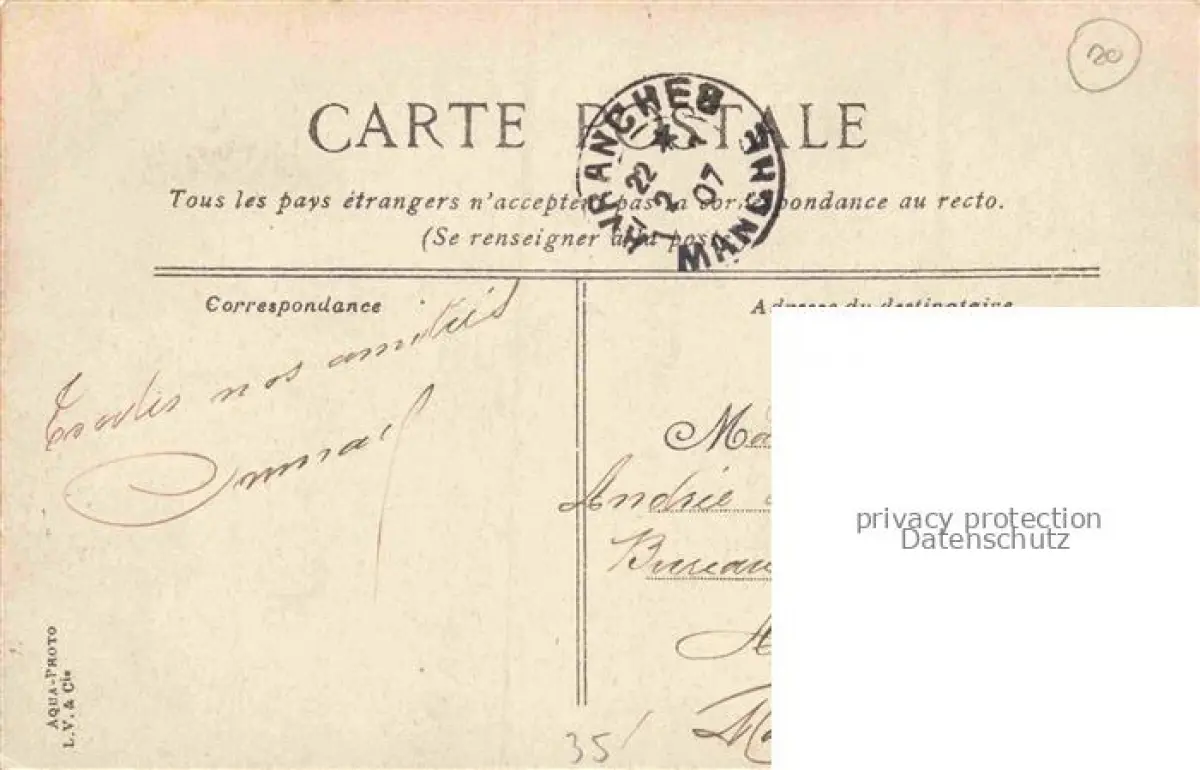 20
CARTE POSTALE
AVRANCHES MANCHE
22 * 2 07
Tous les pays étrangers n'acceptent pas la correspondance au recto.
(Se renseigner à la poste)
Correspondance
Adresse du destinataire
Toutes nos amitiés
Andrée
Bureau
privacy protection
Datenschutz
AQUA-PHOTO
L.V. & Cie
35